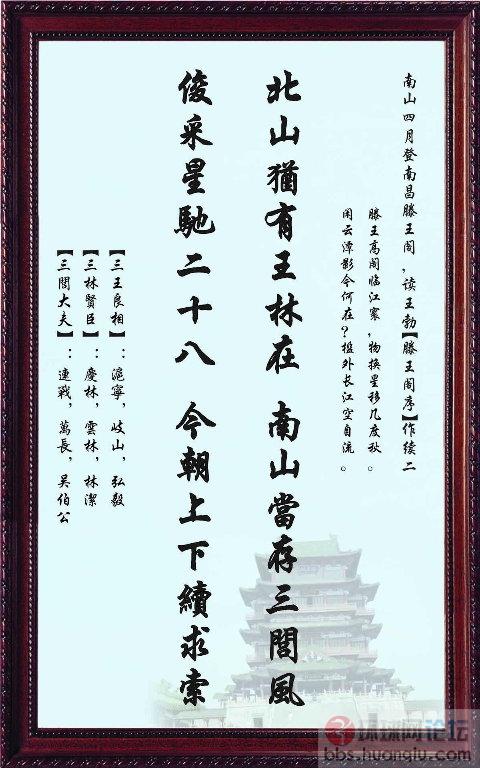 南山四月登南昌滕王阁,读王勃【滕王阁序】作续二
滕王高阁临江寒,物换星移几度秋。
闲云潭影今何在?槛外长江空自流。
北山猶有王林在 南山當存三閭風
俊采星馳二十八 今朝上下續求索
【三王良相】:滬寧,岐山,弘毅
【三林賢臣】:慶林,雲林,林潔
【三閭大夫】:連戰,萬長,吴伯公
环球网论坛
bbs.huanqiu.com